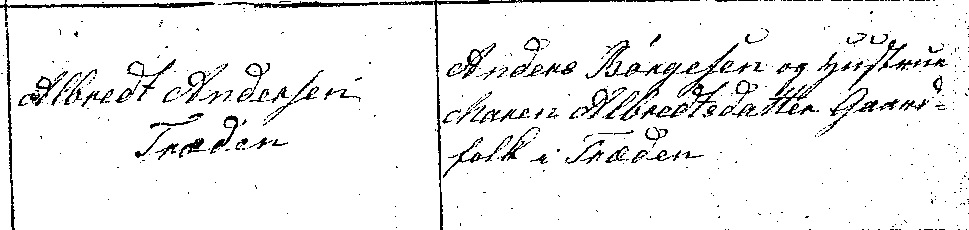 Albredt Andersen
Træden
Anders Börgesen og Hustrue
Maren Albredtsdatter Gaard-
folk i Træden